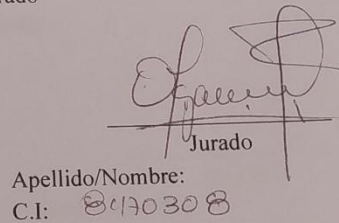 Jurado
Apellido/Nombre:
C.I: 8470308